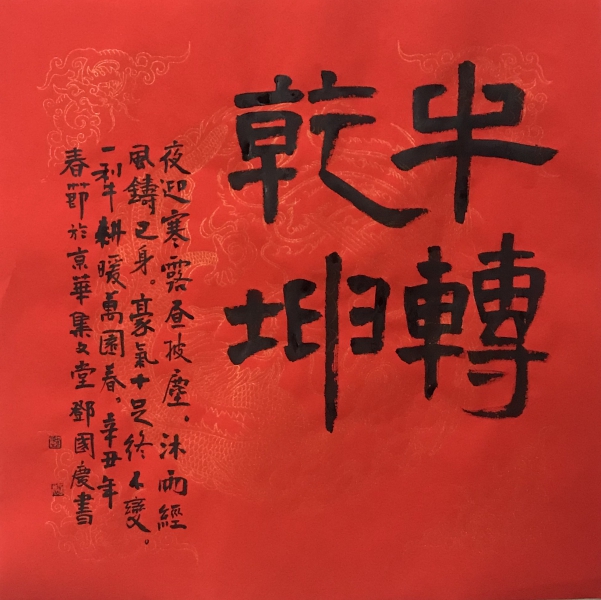 牛轉
乾坤
夜迎寒露昼披塵。沐雨經
風鑄己身。豪氣十足終不變。
一犁耕暖萬園春。辛丑年
春節於京華集文堂鄧國慶書